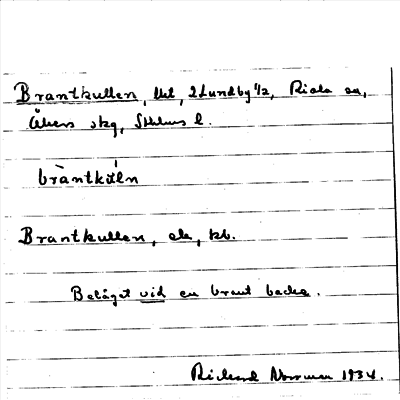 Brantkullen, lht, 2 Lundby 1/2, Riala sn,
Åkers skg, Sthlms l.
bràntkúln
Brantkullen, ek, kb.
Beläget vid en brant backe.
Rickard Norrman 1934.